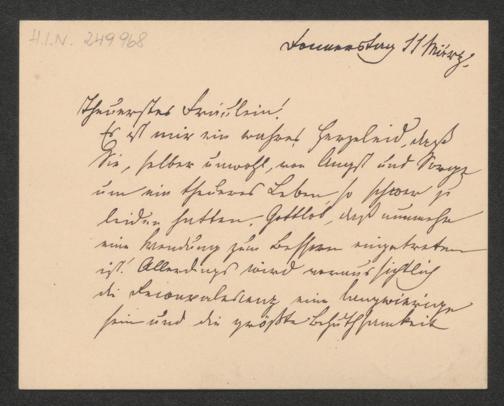 H.I.N. 249968
Donnerstag 11 März.
Theuerstes Fräulein!
Es ist mir ein wahres Herzeleid, daß
Sie, selber unwohl, von Angst und Sorge
um ein theueres Leben, so schwer zu
leiden hatten. Gottlob, daß nunmehr
eine Wendung zum Bessern eingetreten
ist. Allerdings wird voraussichtlich
die Reconvalescenz eine langwierige
sein und die größte Behuthsamkeit